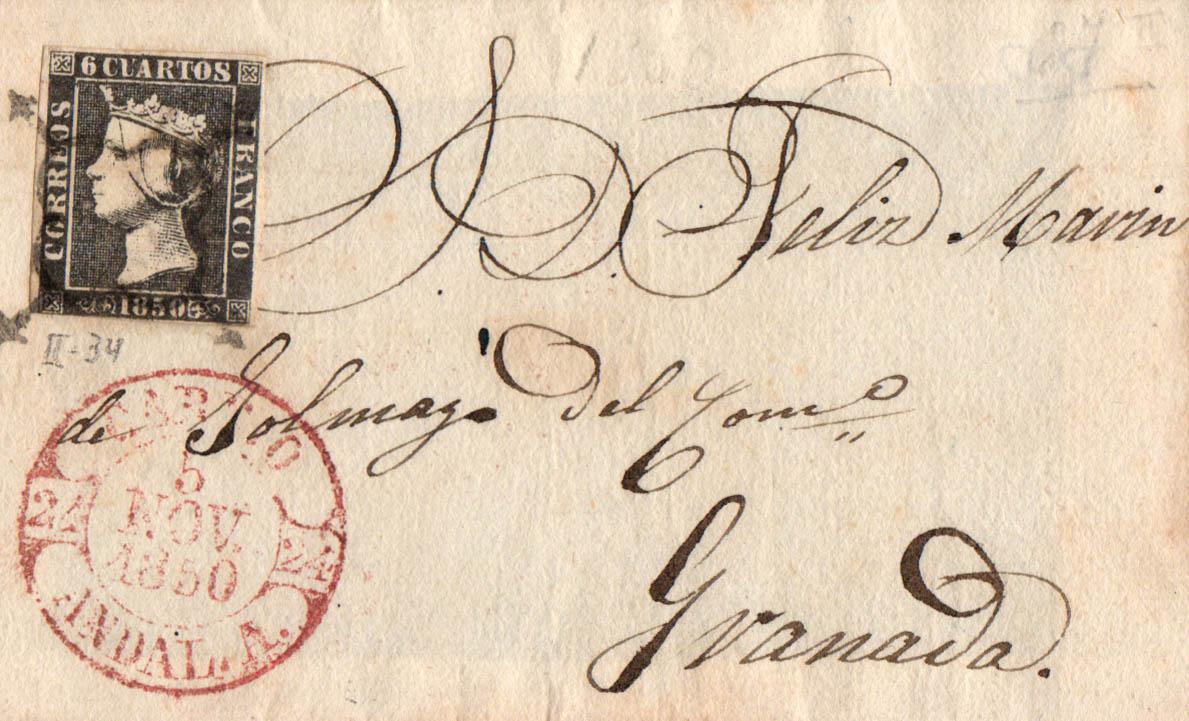 6 CUARTOS
CORREOS
FRANCO
1850
II-34
S. D. Feliz Marin
de del Com.º
Granada.
5
NOV
1850
24 24
ANDAL. A.